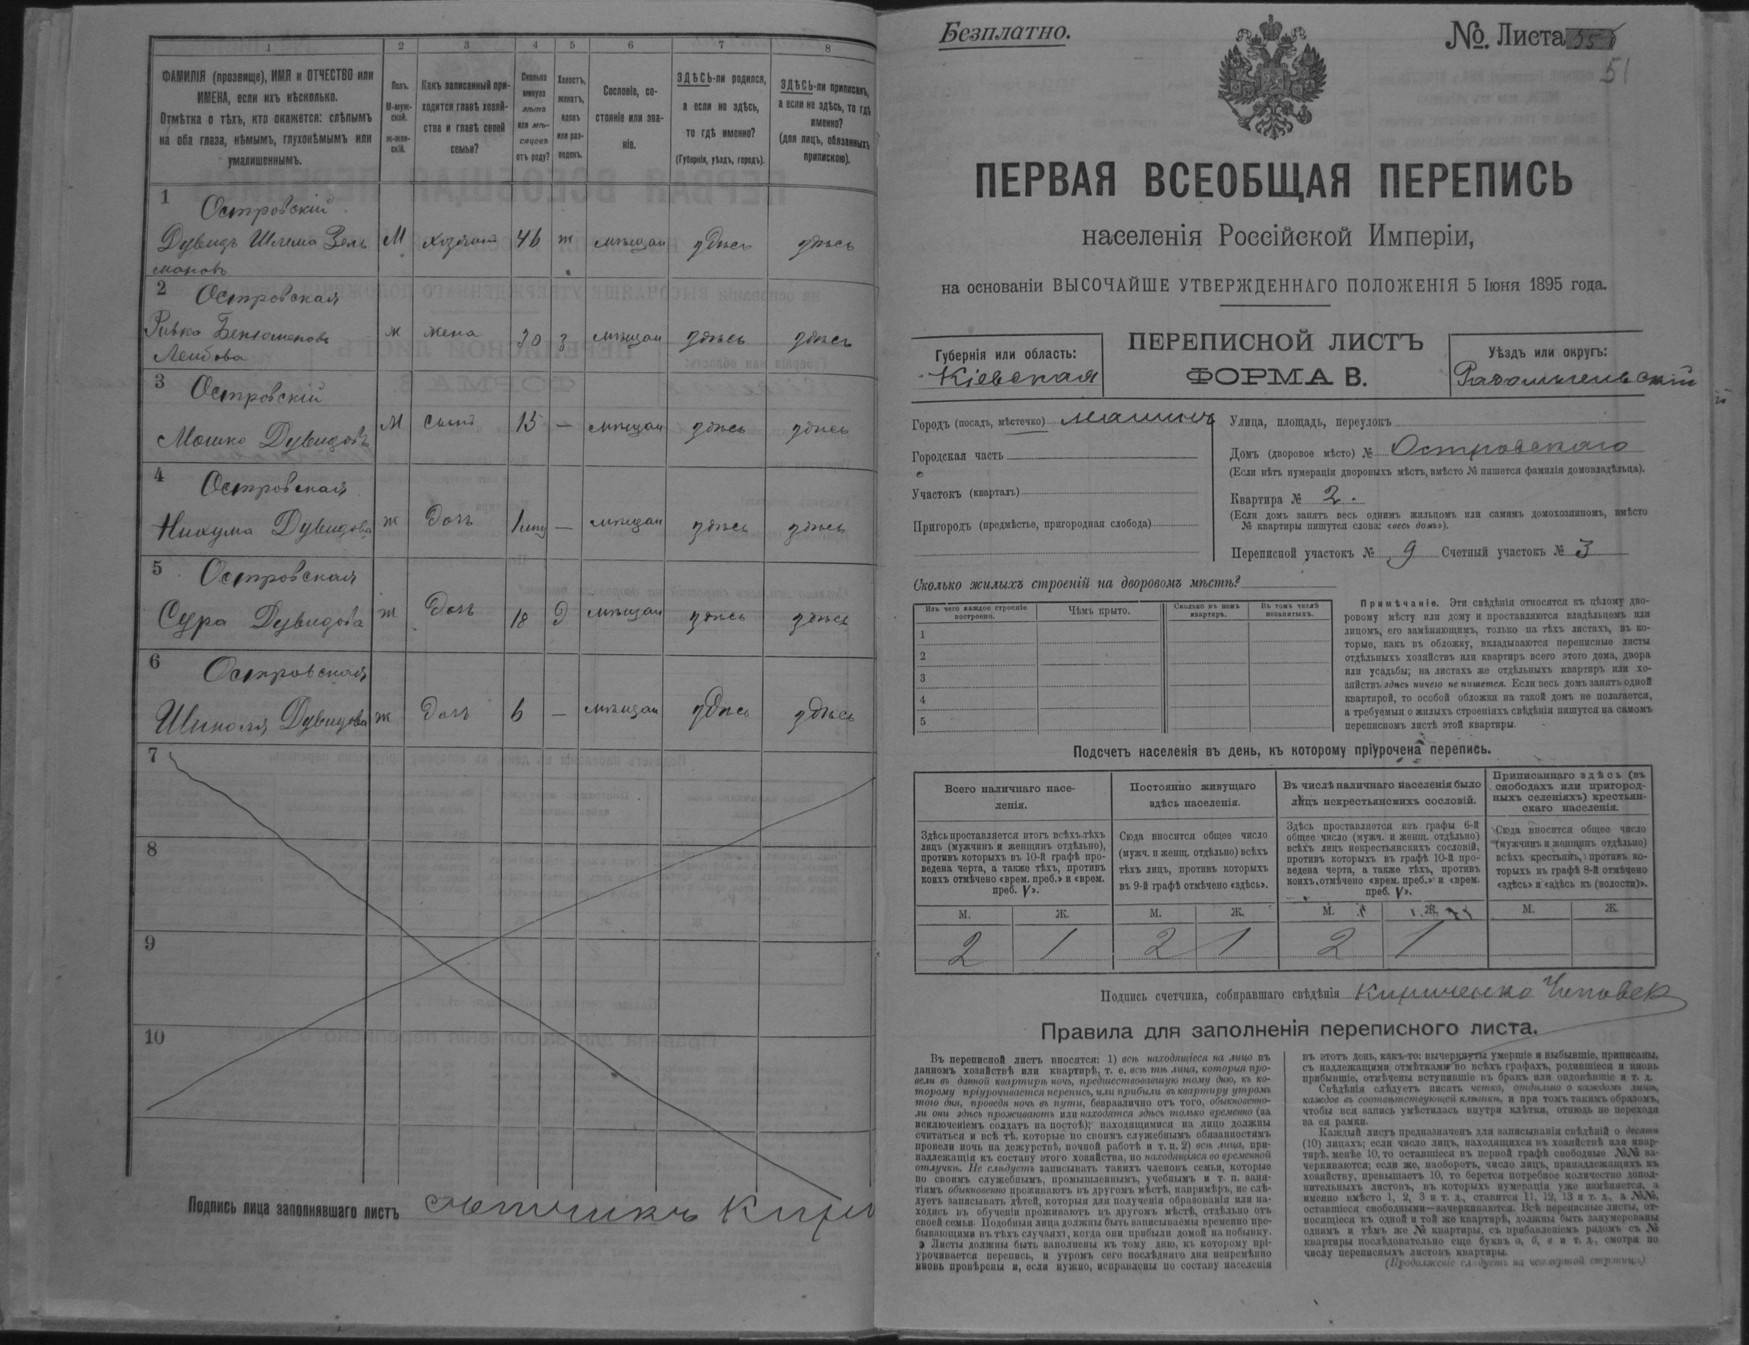 1 2 3 4 5 6 7 8
ФАМИЛІЯ (прозвище), ИМЯ и ОТЧЕСТВО или
ИМЕНА, если ихъ нѣсколько.
Отмѣтка о тѣхъ, кто окажется: слѣпымъ
на оба глаза, нѣмымъ, глухонѣмымъ или
умалишеннымъ.
Полъ.
М-муж-
ской.
ж-жен-
скій.
Какъ записанный при-
ходится главѣ хозяй-
ства и главѣ своей
семьи?
Сколько
минуло
лѣтъ
или мѣ-
сяцевъ
отъ роду?
Холостъ,
женатъ,
вдовъ
или раз-
веденъ.
Сословіе, со-
стояніе или зва-
ніе.
ЗДѢСЬ-ли родился,
а если не здѣсь,
то гдѣ именно?
(Губернія, уѣздъ, городъ).
ЗДѢСЬ-ли приписанъ,
а если не здѣсь, то гдѣ
именно?
(для лицъ, обязанныхъ
припискою).
1 Островскій
Дувидъ Шлема Зель
мановъ М хозяинъ 46 ж мѣщан здѣсь здѣсь
2 Островская
Ривка
Лейбова ж жена 30 з мѣщан здѣсь здѣсь
3 Островскій
Мошко Дувидовъ М сынъ 15 — мѣщан здѣсь здѣсь
4 Островская
Нихума Дувидова ж дочь — мѣщан здѣсь здѣсь
5 Островская
Сура Дувидова ж дочь 18 Д мѣщан здѣсь здѣсь
6 Островская
Дувидова ж дочь 6 — мѣщан здѣсь здѣсь
7
8
9
10
Подпись лица заполнявшаго листъ счетчикъ
Безплатно.
№. Листа
51
ПЕРВАЯ ВСЕОБЩАЯ ПЕРЕПИСЬ
населенія Россійской Имперіи,
на основаніи ВЫСОЧАЙШЕ УТВЕРЖДЕННАГО ПОЛОЖЕНІЯ 5 Іюня 1895 года.
Губернія или область:
Кіевская
ПЕРЕПИСНОЙ ЛИСТЪ
ФОРМА В.
Уѣздъ или округъ:
Радомысльскій
Городъ (посадъ, мѣстечко) Малинъ
Городская часть
Участокъ (кварталъ)
Пригородъ (предмѣстье, пригородная слобода)
Улица, площадь, переулокъ
Домъ (дворовое мѣсто) № Островскаго
(Если нѣтъ нумераціи дворовыхъ мѣстъ, вмѣсто № пишется фамилія домовладѣльца).
Квартира № 2.
(Если домъ занятъ весь однимъ жильцомъ или самимъ домохозяиномъ, вмѣсто
№ квартиры пишутся слова: «весь домъ»).
Переписной участокъ № 9 Счетный участокъ № 3
Сколько жилыхъ строеній на дворовомъ мѣстѣ?
Изъ чего каждое строеніе
построено.
Чѣмъ крыто.
Сколько въ немъ
квартиръ.
Въ томъ числѣ
незанятыхъ.
1
2
3
4
5
Примѣчаніе. Эти свѣдѣнія относятся къ цѣлому дво-
ровому мѣсту или дому и проставляются владѣльцемъ или
лицомъ, его замѣняющимъ, только на тѣхъ листахъ, въ ко-
торые, какъ въ обложку, вкладываются переписные листы
отдѣльныхъ хозяйствъ или квартиръ всего этого дома, двора
или усадьбы; на листахъ же отдѣльныхъ квартиръ или хо-
зяйствъ здѣсь ничего не пишется. Если весь домъ занятъ одной
квартирой, то особой обложки на такой домъ не полагается,
а требуемыя о жилыхъ строеніяхъ свѣдѣнія пишутся на самомъ
переписномъ листѣ этой квартиры.
Подсчетъ населенія въ день, къ которому пріурочена перепись.
Всего наличнаго насе-
ленія.
Здѣсь проставляется итогъ всѣхъ тѣхъ
лицъ (мужчинъ и женщинъ отдѣльно),
противъ которыхъ въ 10-й графѣ про-
ведена черта, а также тѣхъ, противъ
коихъ отмѣчено «врем. преб.» и «врем.
преб. V».
Постоянно живущаго
здѣсь населенія.
Сюда вносится общее число
(мужч. и женщ. отдѣльно) всѣхъ
тѣхъ лицъ, противъ которыхъ
въ 9-й графѣ отмѣчено «здѣсь».
Въ числѣ наличнаго населенія было
лицъ некрестьянскихъ сословій.
Здѣсь проставляется изъ графы 6-й
общее число (мужч. и женщ. отдѣльно)
всѣхъ лицъ некрестьянскихъ сословій,
противъ которыхъ въ графѣ 10-й про-
ведена черта, а также тѣхъ, противъ
коихъ отмѣчено «врем. преб.» и «врем.
преб. V».
Приписаннаго здѣсь (въ
слободахъ или пригород-
ныхъ селеніяхъ) крестьян-
скаго населенія.
Сюда вносится общее число
(мужчинъ и женщинъ отдѣльно)
всѣхъ крестьянъ, противъ ко-
торыхъ въ графѣ 8-й отмѣчено
«здѣсь» и «здѣсь къ (волости)».
М. Ж. М. Ж. М. Ж. М. Ж.
2 1 2 1 2 1
Подпись счетчика, собиравшаго свѣдѣнія Кириченко
Правила для заполненія переписного листа.
Въ переписной листъ вносятся: 1) всѣ находящіеся на лицо въ
данномъ хозяйствѣ или квартирѣ, т. е. всѣ тѣ лица, которыя про-
вели въ данной квартирѣ ночь, предшествовавшую тому дню, къ ко-
торому пріурочивается перепись, или прибыли въ квартиру утромъ
того дня, проведя ночь въ пути, безразлично отъ того, обыкновенно-
ли они здѣсь проживаютъ или находятся здѣсь только временно (за
исключеніемъ солдатъ на постоѣ); находящимися на лицо должны
считаться и всѣ тѣ, которые по своимъ служебнымъ обязанностямъ
провели ночь на дежурствѣ, ночной работѣ и т. п. 2) всѣ лица, при-
надлежащія къ составу этого хозяйства, но находящіяся во временной
отлучкѣ. Не слѣдуетъ записывать такихъ членовъ семьи, которые
по своимъ служебнымъ, промышленнымъ, учебнымъ и т. п. заня-
тіямъ обыкновенно проживаютъ въ другомъ мѣстѣ, напримѣръ, не слѣ-
дуетъ записывать дѣтей, которыя для полученія образованія или на-
ходясь въ обученіи проживаютъ въ другомъ мѣстѣ, отдѣльно отъ
своей семьи. Подобныя лица должны быть записываемы временно пре-
бывающими въ тѣхъ случаяхъ, когда они прибыли домой на побывку.
Листы должны быть заполнены къ тому дню, къ которому прі-
урочивается перепись, и утромъ сего послѣдняго дня непремѣнно
вновь провѣрены и, если нужно, исправлены по составу населенія
въ этотъ день, какъ-то: вычеркнуты умершіе и выбывшіе, приписаны,
съ надлежащими отмѣтками во всѣхъ графахъ, родившіеся и вновь
прибывшіе, отмѣчены вступившіе въ бракъ или овдовѣвшіе и т. д.
Свѣдѣнія слѣдуетъ писать четко, отдѣльно о каждомъ лицѣ,
каждое въ соотвѣтствующей клѣткѣ, и при томъ такимъ образомъ,
чтобы вся запись умѣстилась внутри клѣтки, отнюдь не переходя
за ея рамки.
Каждый листъ предназначенъ для записыванія свѣдѣній о десяти
(10) лицахъ; если число лицъ, находящихся въ хозяйствѣ или квар-
тирѣ, менѣе 10, то оставшіеся въ первой графѣ свободные №№ за-
черкиваются; если же, наоборотъ, число лицъ, принадлежащихъ къ
хозяйству, превышаетъ 10, то берется потребное количество допол-
нительныхъ листовъ, въ которыхъ нумерація уже измѣняется, а
именно вмѣсто 1, 2, 3 и т. д., ставится 11, 12, 13 и т. д., а №№,
оставшіеся свободными—зачеркиваются. Всѣ переписные листы, от-
носящіеся къ одной и той же квартирѣ, должны быть занумерованы
однимъ и тѣмъ же № квартиры, съ прибавленіемъ рядомъ съ №
квартиры послѣдовательно еще буквъ а, б, в и т. д., смотря по
числу переписныхъ листовъ квартиры.
(Продолженіе слѣдуетъ на четвертой страницѣ)